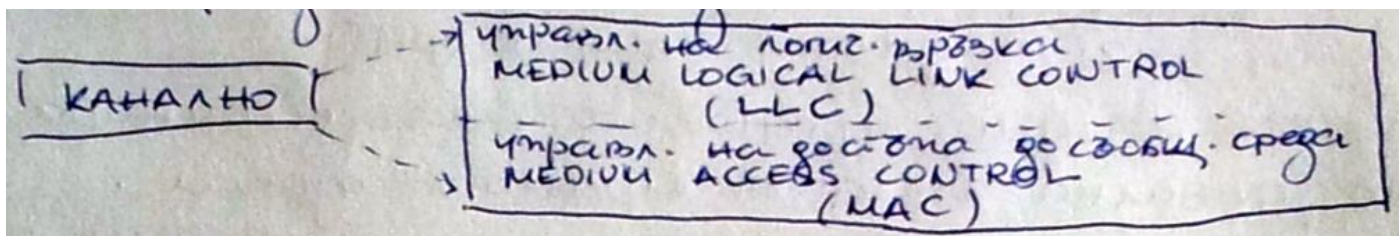 управл. на логич. връзка
MEDIUM LOGICAL LINK CONTROL
КАНАЛНО
(LLC)
управл. на достъпа до съобщ. среда
MEDIUM ACCESS CONTROL
(MAC)